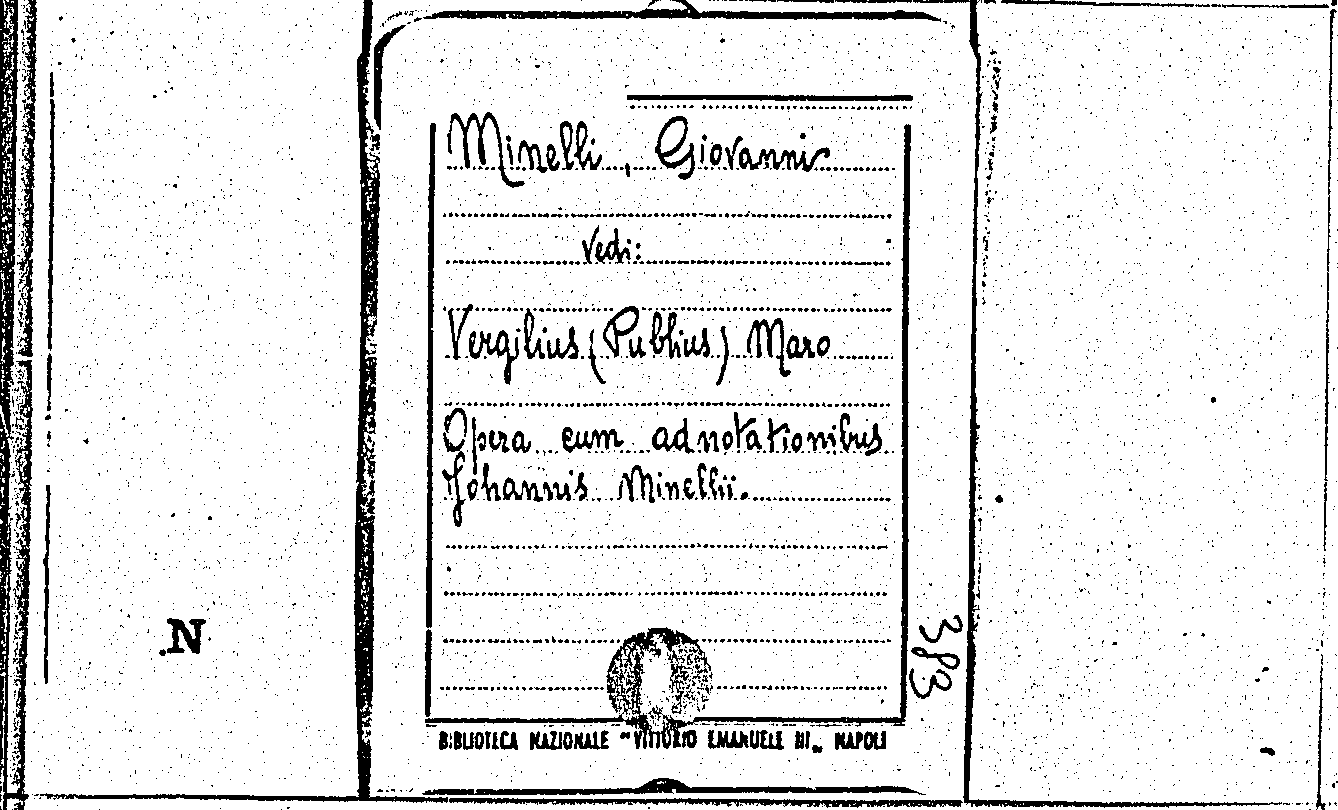 Minelli, Giovanni
Vedi:
Vergilius (Publius) Maro
Opera cum adnotationibus
Johannis Minellii.
383
.N
BIBLIOTECA NAZIONALE "VITTORIO EMANUELE III„ NAPOLI